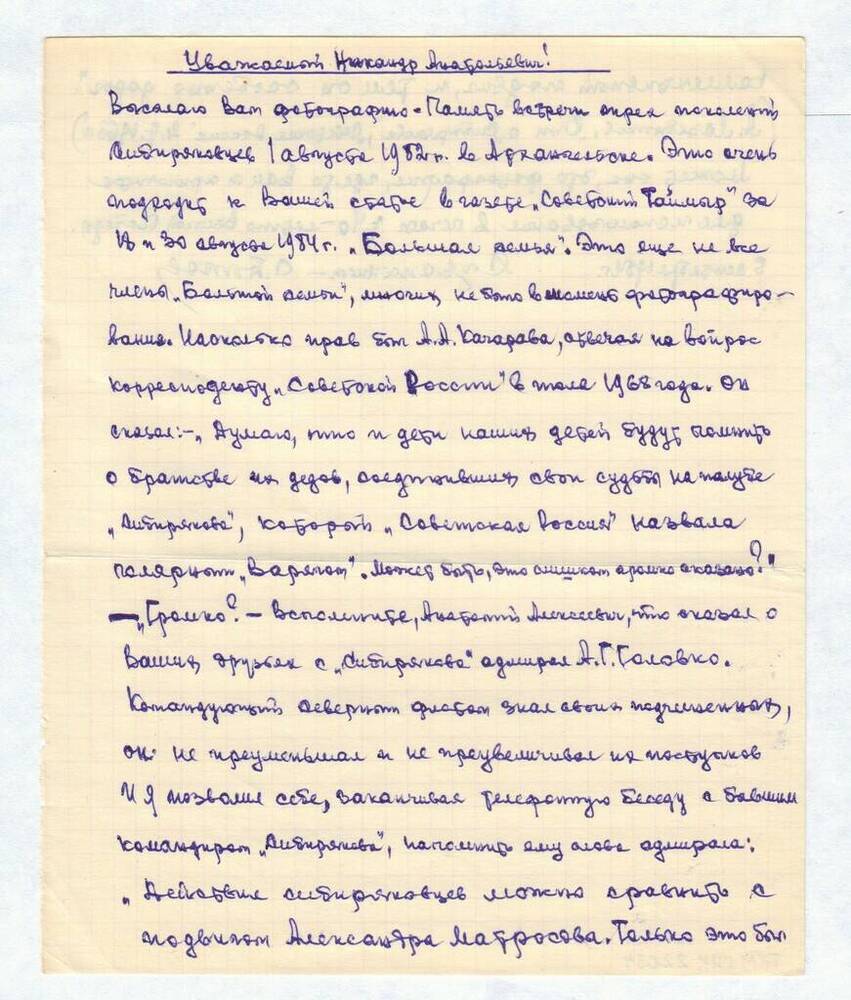 Уважаемый Никандр Анатольевич!
Высылаю Вам фотографию - Память встречи трех поколений
Сибиряковцев 1 августа 1982 г. в Архангельске. Это очень
подходит к Вашей статье в газете „Советский Таймыр" за
18 и 30 августа 1984 г. „Большая семья". Это еще не все
члены „Большой семьи", многих не было в момент фотографиро-
вания. Насколько прав был А.А. Качарава, отвечая на вопрос
корресподенту „Советской России" в июле 1968 года. Он
сказал:-„ Думаю, что и дети наших детей будут помнить
о братстве их дедов, соединивших свои судьбы на палубе
„Сибирякова", который „Советская Россия" назвала
полярным „Варягом". Может быть, это слишком громко сказано?"
— „Громко? - Вспомните, Анатолий Алексеевич, что сказал о
Ваших друзьях с „Сибирякова" адмирал А.Г. Головко.
Командующий северным флотом знал своих подчиненных,
он не преуменьшал и не преувеличивал их поступков
И я позволил себе, заканчивая телефонную беседу с бывшим
командиром „Сибирякова", напомнить ему слова адмирала:
„ Действия сибиряковцев можно сравнить с
подвигом Александра Матросова. Только это был